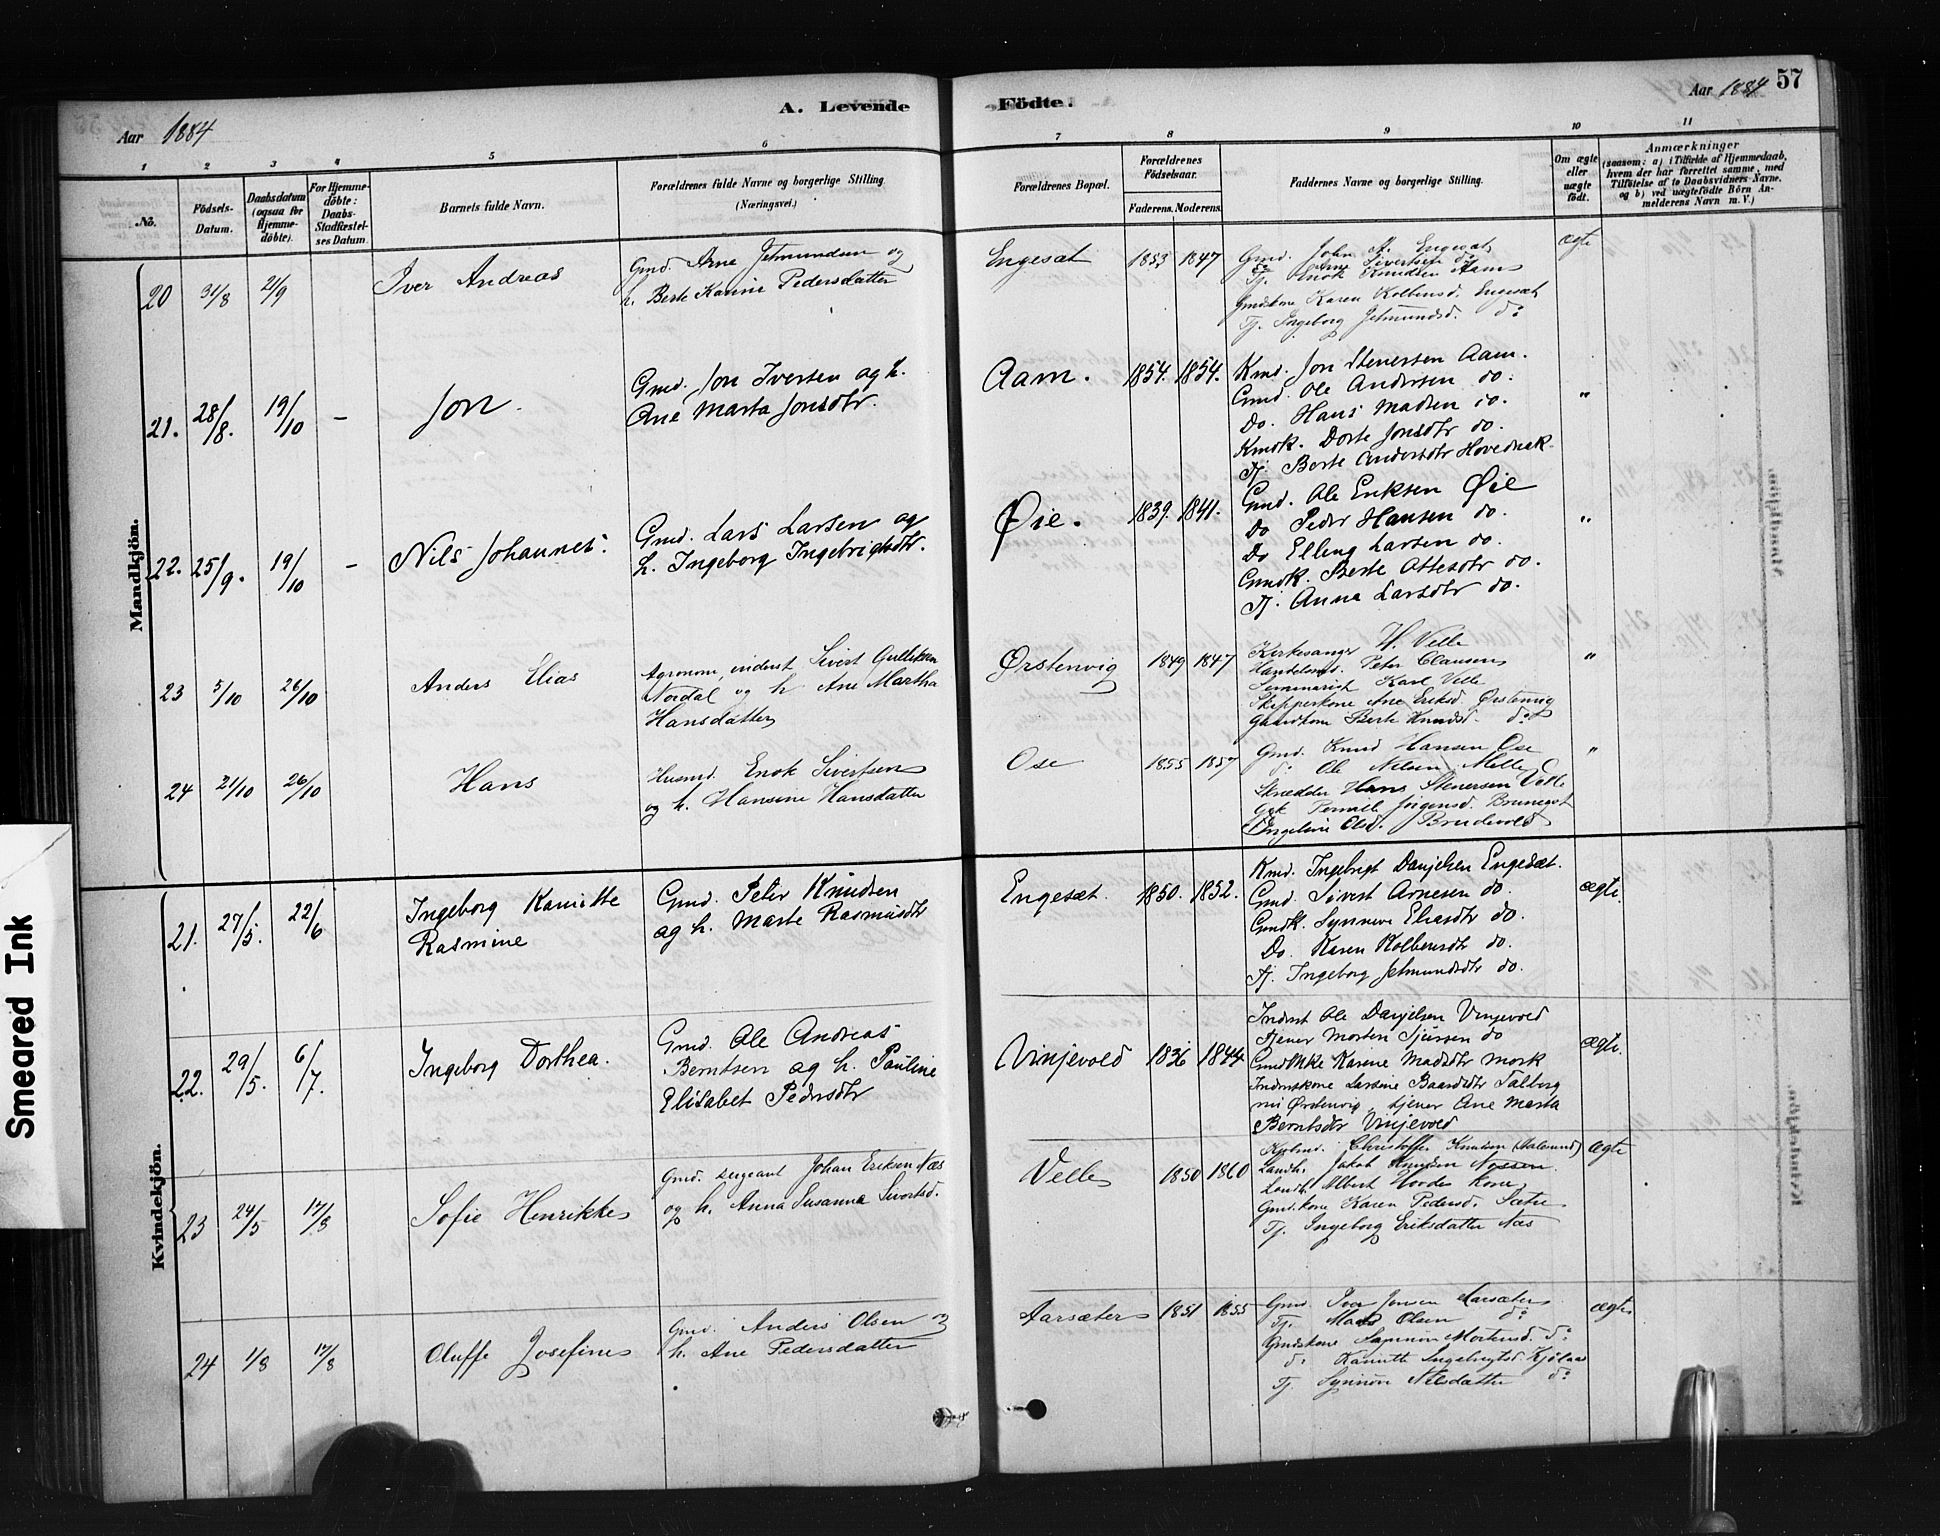 A. Levende Födte.
57
Aar 1884
Aar 1884
1 2 3 4 5 6 7 8 9 10 11
No.
Födsels-Datum.
Daabsdatum (ogsaa for Hjemme-döbte).
For Hjemme-döbte: Daabs-Stadfæstel-ses Datum.
Barnets fulde Navn.
Forældrenes fulde Navne og borgerlige Stilling.
(Næringsvei.)
Forældrenes Bopæl.
Forældrenes Födselsaar.
Faderens. Moderens.
Faddernes Navne og borgerlige Stilling.
Om ægte eller uægte födt.
Anmærkninger
(saasom: a) i Tilfælde af Hjemmedaab,
hvem der har forrettet samme, med
Tilföielse af to Daabsvidners Navne,
og b) ved uægtefödte Börn An-
melderens Navn m. V.)
Mandkjön.
20 31/8 21/9 Iver Andreas
Gmd. Arne Jetmundsen og
h. Berte Karine Pedersdatter
Engesæt 1853 1847
Gmd. John A. Engesæt
Sivertsen do
Tj. Enok Knudsen Aam
Gmdskone Karen Kolbensd. Engesæt
Tj. Ingeborg Jetmundsd. do
ægte
21. 28/8. 19/10 - Jon.
Gmd. Jon Iversen og h.
Ane Marta Jonsdtr.
Aam. 1854. 1854.
Kmd. Jon Stenersen Aam.
Gmd. Ole Andersen do.
Do. Hans Madsen do.
Kmdk. Dorte Jonsdtr do.
Tj. Berte Andersdtr Hovednak.
"
22. 25/9. 19/10 - Nils Johannes.
Gmd. Lars Larsen og
h. Ingeborg Ingebrigtsdtr.
Øie. 1839. 1841.
Gmd. Ole Eriksen Øie
Do Peder Hansen do.
Do Elling Larsen do.
Gmdk. Berte Ottesdtr do.
Tj. Anna Larsdtr do.
"
23 5/10 26/10 Anders Elias
Agronom, inderst Sivert Gulliksen
Nordal og h. Ane Martha
Hansdatter
Ørstenvig 1849 1847
Kirkesanger H. Velle
Handelsmd. Peter Clausen
Seminarist Karl Velle
Skipperkone Ane Eriksd. Ørstenvig
Gaardkone Berte Knudsd. do
"
24 21/10 26/10 Hans
Husmd. Enok Sivertsen
og h. Hansine Hansdatter
Ose 1855 1857
Gmd. Knud Hansen Ose
Ole Nilsen Melle
Skrædder Hans Stenersen Velle
Pernille Jörgensd. Brunegot
Ingeline Olsd. Brudevold
"
Kvindekjön.
21. 27/5. 22/6 Ingeborg Kamitte
Rasmine
Gmd. Peter Knudsen
og h. Marte Rasmusdtr
Engesæt. 1850. 1852.
Kmd. Ingebrigt Danjelsen Engesæt.
Gmd. Sivert Arnesen do.
Gmdk. Synneve Eliasdtr do.
Do. Karen Kolbensdtr do.
Tj. Ingeborg Jetmundsdtr do.
ægte.
22. 29/5. 6/7. Ingeborg Dorthea.
Gmd. Ole Andreas
Berntsen og h. Pauline
Elisabet Pedersdtr
Vinjevold 1836 1844
Inderst Ole Danjelsen Vinjevold
Tjener Morten Sjursen do
Gmd Enke Karine Madsdtr Mork
Inderstkone Larsine Baardsdtr Talberg
nu Ørstenvig, tjener Ane Marta
Berntsdtr Vinjevold
ægte.
23 24/5 17/8 Sofie Henrikke
Gmd. sergeant Johan Eriksen Næs
og h. Anna Susanna Sivertsd.
Velle 1850 1860
Kjøbmd. Christoffer Knutsen (Aalesund)
Landh. Jakob Knudsen Nossen
Landh. Albert Hovdes kone
Gmd.kone Karen Pedersd. Sætre
Tj. Ingeborg Eriksdatter Næs
ægte
24 1/8 17/8 Oluffe Josefine
Gmd. Anders Olsen og
h. Ane Pedersdatter
Aarsæter 1851 1855
Gmd. Iver Jonsen Aarsæter
Tj. Mads Olsen do
Gmdskone Synnøve Mortensd. do
do Kamitte Ingebrigtsd. Kjölaas
Tj. Synnøve Nilsdatter do
ægte
Smeared Ink